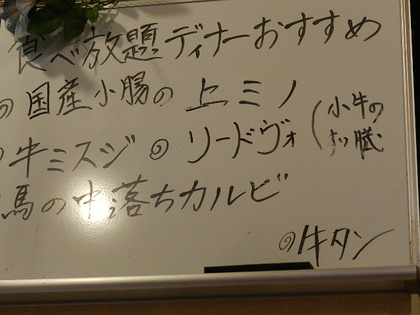 食べ放題ディナーおすすめ
◎国産小腸の 上ミノ
◎牛ミスジ ◎リードヴォ(小牛の
臓
馬の中落ちカルビ
◎牛タン